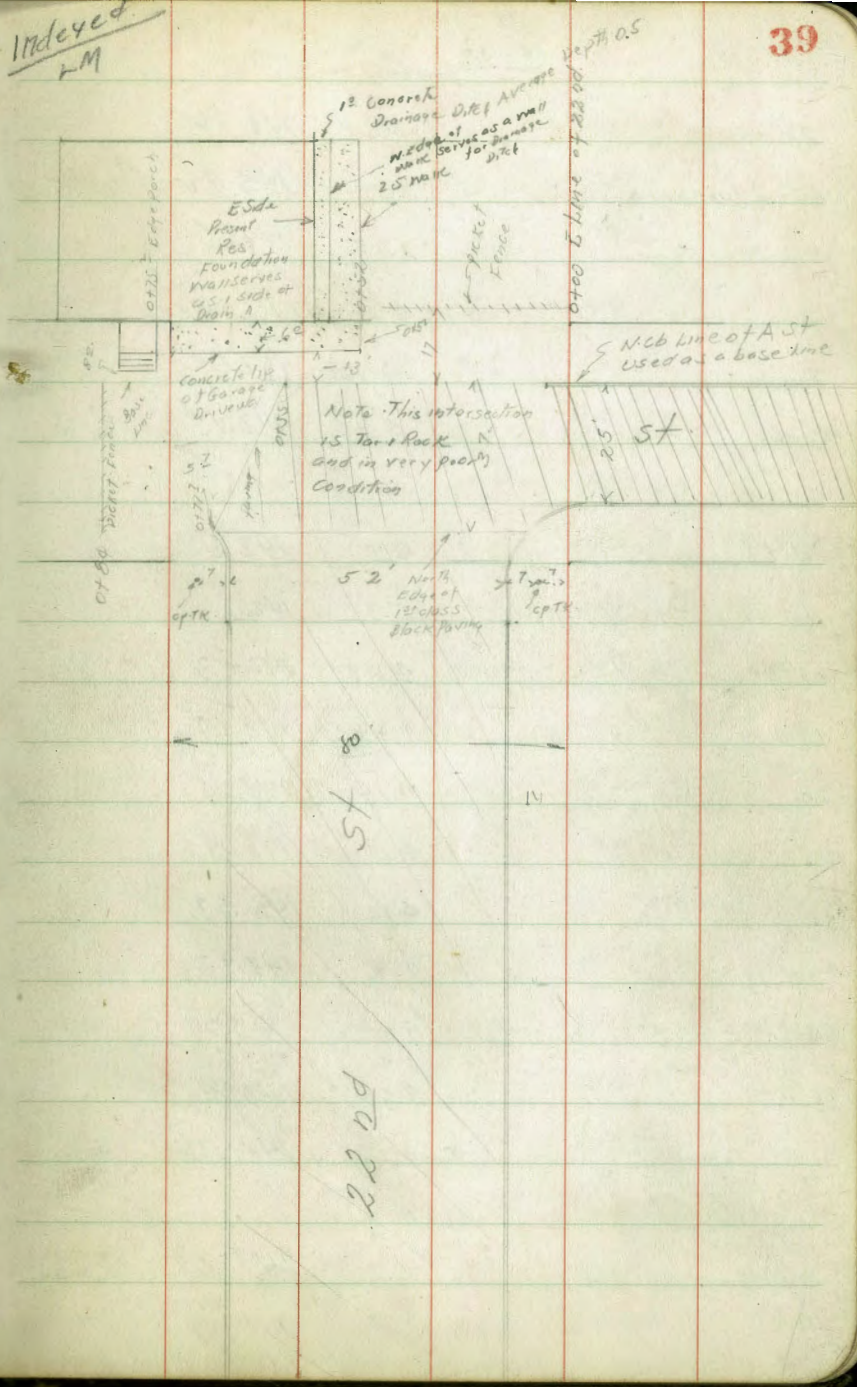 Indexed
LM
39
1⁰ Concrete
Drainage Ditch Average Depth 0.5
W. Edge of
walk serves as a wall
for Drainage
Ditch
2.5 Walk
0+75² Edge Porch
E Side
Present
Res
Foundation
Wall serves
as 1 side of
Drain A
0+50
Picket
Fence
0+00 E Line of 22nd
N. Cb Line of A St
used as a base line
6⁰
13
17
Concrete lip
of Garage
Driveway
Base
Line
0+84 Picket Fence
5⁷
0+55
Note This intersection
is Tar & Rock
and in very poor
Condition
7'
25'
St
52'
North
Edge of
1st class
Block Paving
cp TK.
7
cp TK.
80
St
14
22 nd